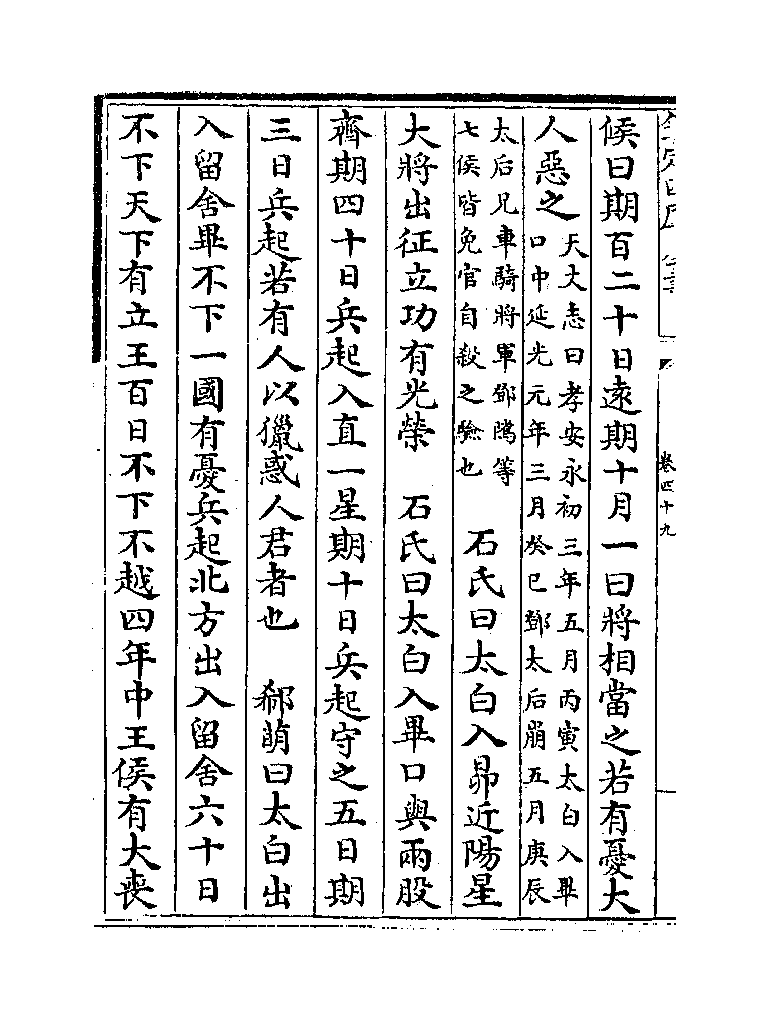 欽定四庫全書
卷四十九
候曰期百二十日遠期十月一曰將相當之若有憂大
人惡之
天文志曰孝安永初三年五月丙寅太白入畢
口中延光元年三月癸巳鄧太后崩五月庚辰
太后兄車騎將軍鄧隲等
七侯皆免官自殺之驗也
石氏曰太白入昴近陽星
大將出征立功有光榮　石氏曰太白入畢口與兩股
齊期四十日兵起入直一星期十日兵起守之五日期
三日兵起若有人以獵惑人君者也　郗萌曰太白出
入留舍畢不下一國有憂兵起北方出入留舍六十日
不下天下有立王百日不下不越四年中王侯有大喪